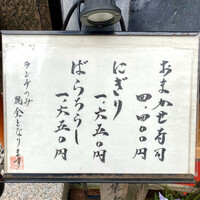 おまかせ寿司
四.四〇〇円
にぎり
一.六五〇円
ばらちらし
一.六五〇円
ランチのみ
現金となります